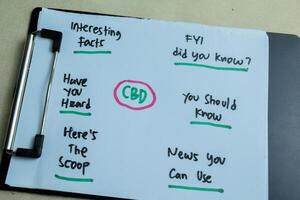 Interesting
Facts
FYI
did you know?
Have
you
Heard
CBD
You Should
Know
Here's
The
Scoop
News You
Can Use